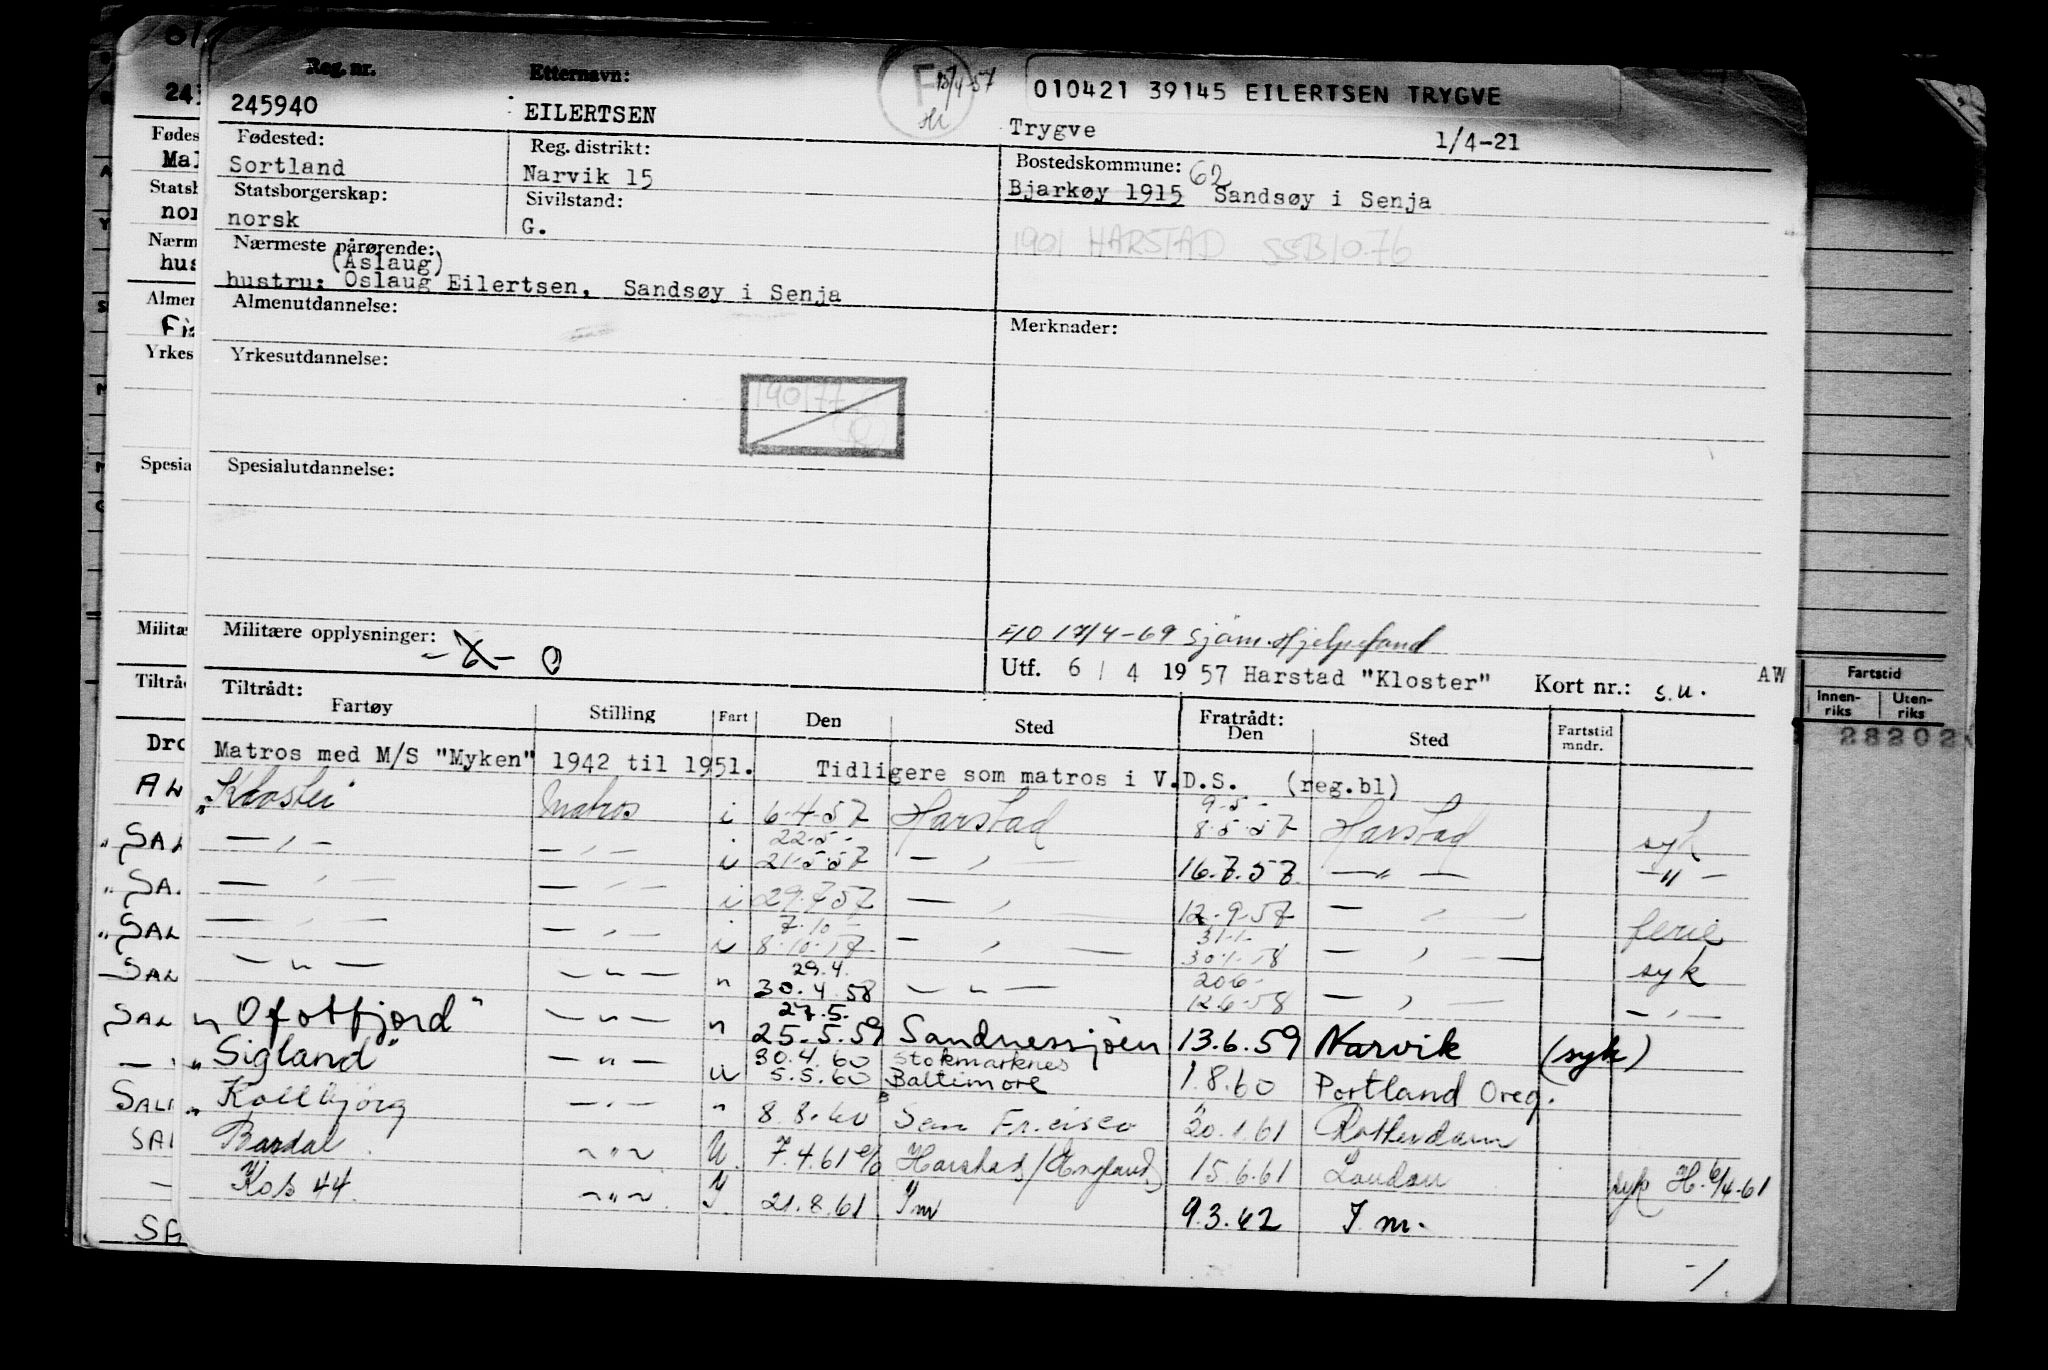 Reg. nr. Etternavn: 010421 39145 EILERTSEN TRYGVE
245940 EILERTSEN Trygve 1/4-21
Fødested: Reg. distrikt: Bostedskommune:
Sortland Narvik 15 Bjarkøy 1915 62 Sandsøy i Senja
Statsborgerskap: Sivilstand:
norsk G. 1901 HARSTAD SSB 10.76
Nærmeste pårørende:
(Åslaug)
hustru: Oslaug Eilertsen, Sandsøy i Senja
Almenutdannelse: Merknader:
Yrkesutdannelse:
190177
Spesialutdannelse:
Militære opplysninger: O
F/O 17/4-69 Sjøm. Hjelpefond
Utf. 6 / 4 1957 Harstad "Kloster" Kort nr.: s.u. AW
Tiltrådt: Fratrådt:
Fartøy Stilling Fart Den Sted Den Sted Fartstid mndr.
Matros med M/S "Myken" 1942 til 1951. Tidligere som matros i V.D.S. (reg.bl)
9-5-
"Kloster Matros i 6-4-57 Harstad 8-5-57 Harstad syk
22-5-
— " — — " — i 21-5-57 — " — 16.7.57 — " — — " —
— " — — " — i 29.7.57 — " — 12-9-57 — " — ferie
7-10- 31-1-
— " — — " — i 8-10-57 — " — 30-1-58 — " — syk
29.4. 20.6-
— " — — " — " 30.4.58 — " — 12.6-58 — " — — " —
27.5.
" Ofotfjord" — " — " 25.5.59 Sandnessjøen 13.6.59 Narvik (syk)
30.4.60 Stokmarknes
"Sigland" — " — u 5.5.60 Baltimore 1.8.60 Portland Oreg.
" Kollbjørg — " — " 8.8.60 San Fr.cisco 20.1.61 Rotterdam
Bardal ~ " ~ U. 7.4.61 Harstad/(England) 15.6.61 London syk H. 6/4-61
Kos 44. ~ " ~ I. 21.8.61 I m 9.3.62 I m.
-/.
Fartstid
Innen-riks Uten-riks
28202